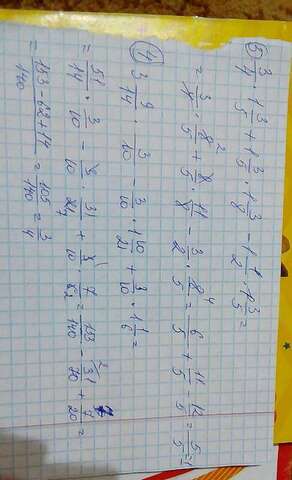 5) 3/4 · 1 3/5 + 1 3/5 · 1 3/8 - 1 1/2 · 1 3/5 =
= 3/4 · 8/5 + 8/5 · 11/8 - 3/2 · 8/5 = 6/5 + 11/5 - 12/5 = 5/5 = 1
4) 3 9/14 · 3/10 - 3/10 · 1 10/21 + 3/10 · 1 1/6 =
= 51/14 · 3/10 - 3/10 · 31/21 + 3/10 · 7/6 = 153/140 - 31/70 + 7/20 =
= 153-62+14/140 = 105/140 = 3/4